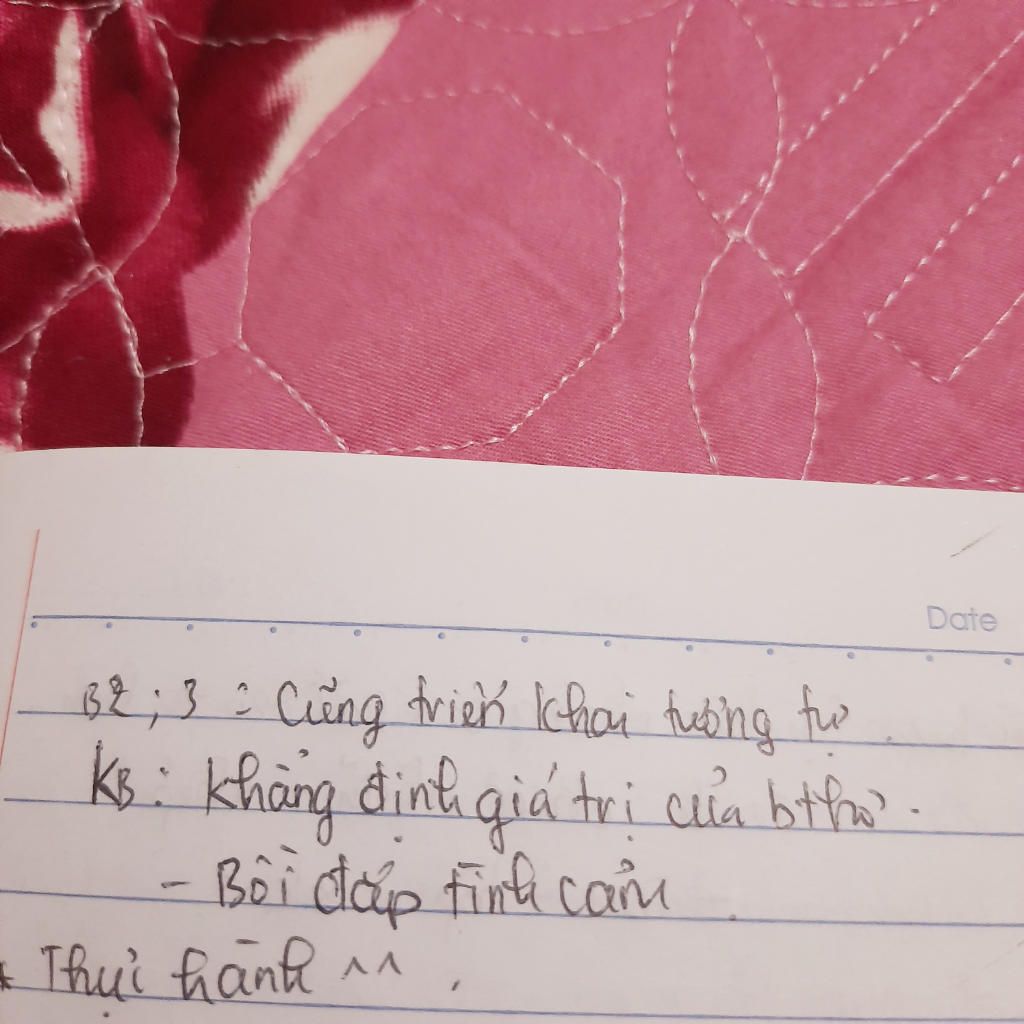 Date
B2; 3: Cũng triển khai tương tự.
KB: khẳng định giá trị của bthơ.
- Bồi đắp tình cảm.
* Thực hành ^^.